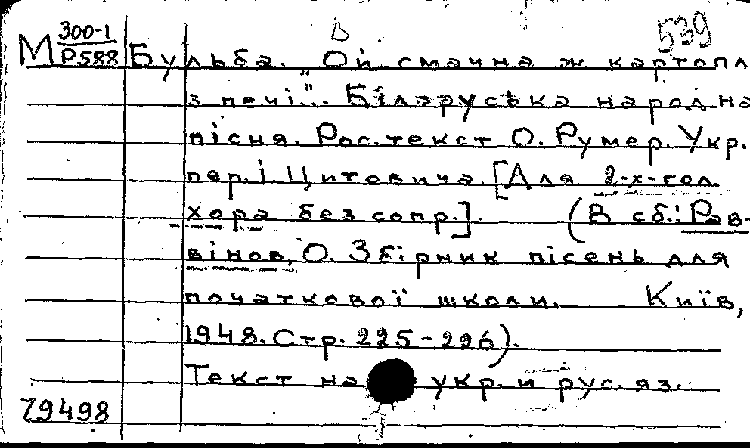 В 539
М 300-1
Р588
Бульба. "Ой смачна ж картопл
з печі". Білоруська народна
пісня. Рос.текст О. Румер. Укр.
пер. І Цитовича. [Для 2-х-гол.
хора без сопр.]. (В сб.: Рав-
вінов, О. Збірник пісень для
початкової школи. Київ,
1948. Стр. 225-226).
Текст на укр. и рус. яз.
79498